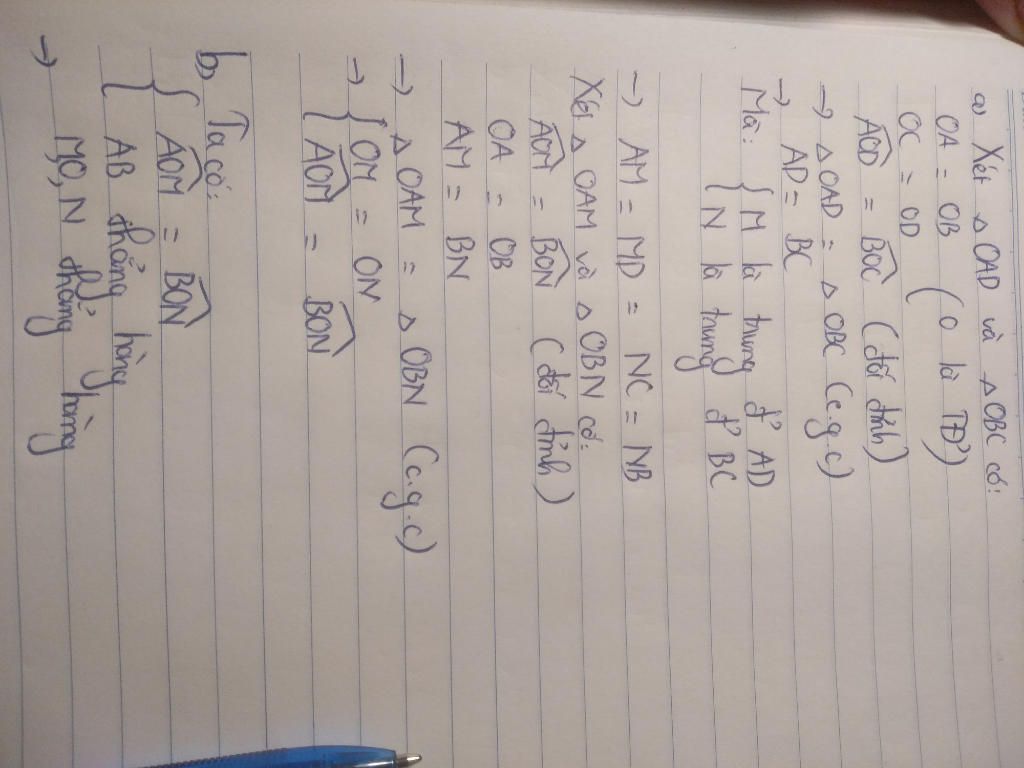 a) Xét △OAD và △OBC có:
OA = OB (O là TĐ)
OC = OD
AOD = BOC (đối đỉnh)
→ △OAD = △OBC (c.g.c)
→ AD = BC
Mà: { M là trung đ' AD
N là trung đ' BC
→ AM = MD = NC = NB
Xét △OAM và △OBN có:
AOM = BON (đối đỉnh)
OA = OB
AM = BN
→ △OAM = △OBN (c.g.c)
→ { OM = ON
AOM = BON
b) Ta có:
{ AOM = BON
AB thẳng hàng
→ M,O,N thẳng hàng